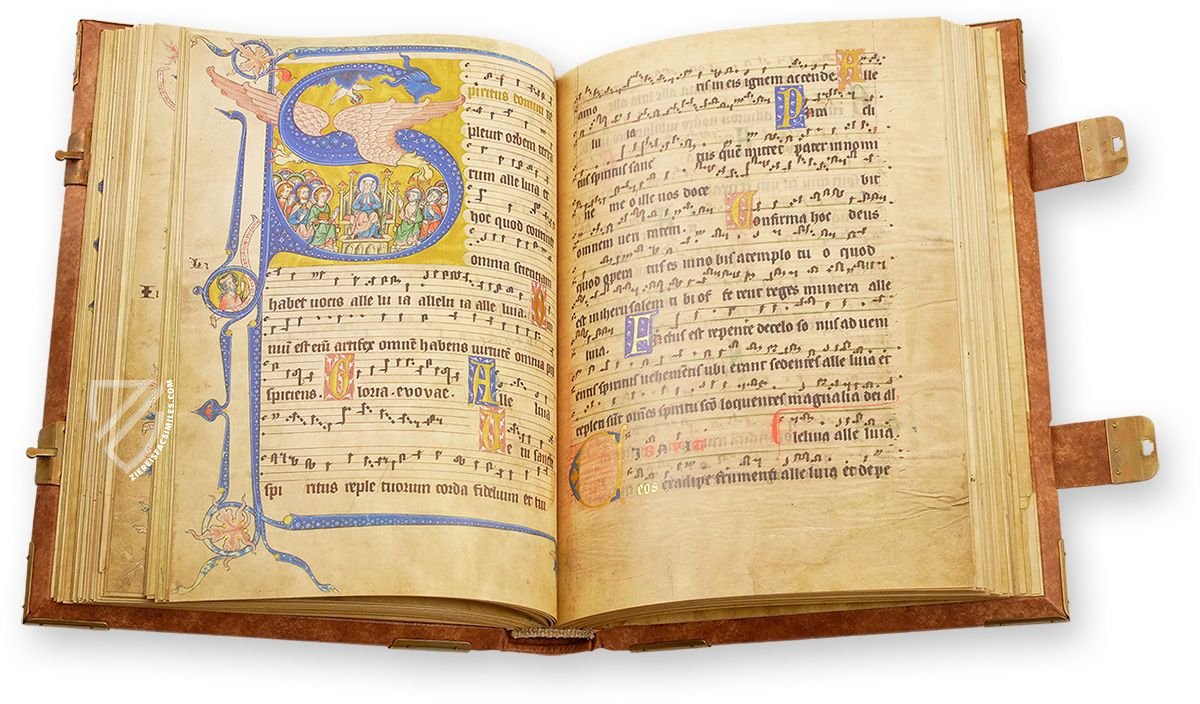 Spiritus domini re
pleuit orbem terra
rum alle luia et
hoc quod continet
omnia scientiam
habet uocis alle lu ia allelu ia alle luia.
omnia
spiciens. Gloria. evovae. Alle luia
Ue ni sancte
spi ritus reple tuorum corda fidelium et tui
amo ris in eis ignem accende. Alle
lu ia Para cli
tus spiritus sanc tus quem mittet pater in nomi
ne me o ille uos doce bit
omnem ueri tatem. Confirma hoc deus
quod opera tus es in no bis a templo tu o quod
est in iherusalem ti bi of fe rent reges munera alle
luia. Factus est repente de celo so nus ad uem
entis spiritus uehementis ubi erant sedentes alle luia et
repleti sunt omnes spiritu sco loquentes magnalia dei al
CIBAVIT leluia alle luia.
eos ex adipe frumenti alle luia et de pe
ZIEREISFACSIMILES.COM